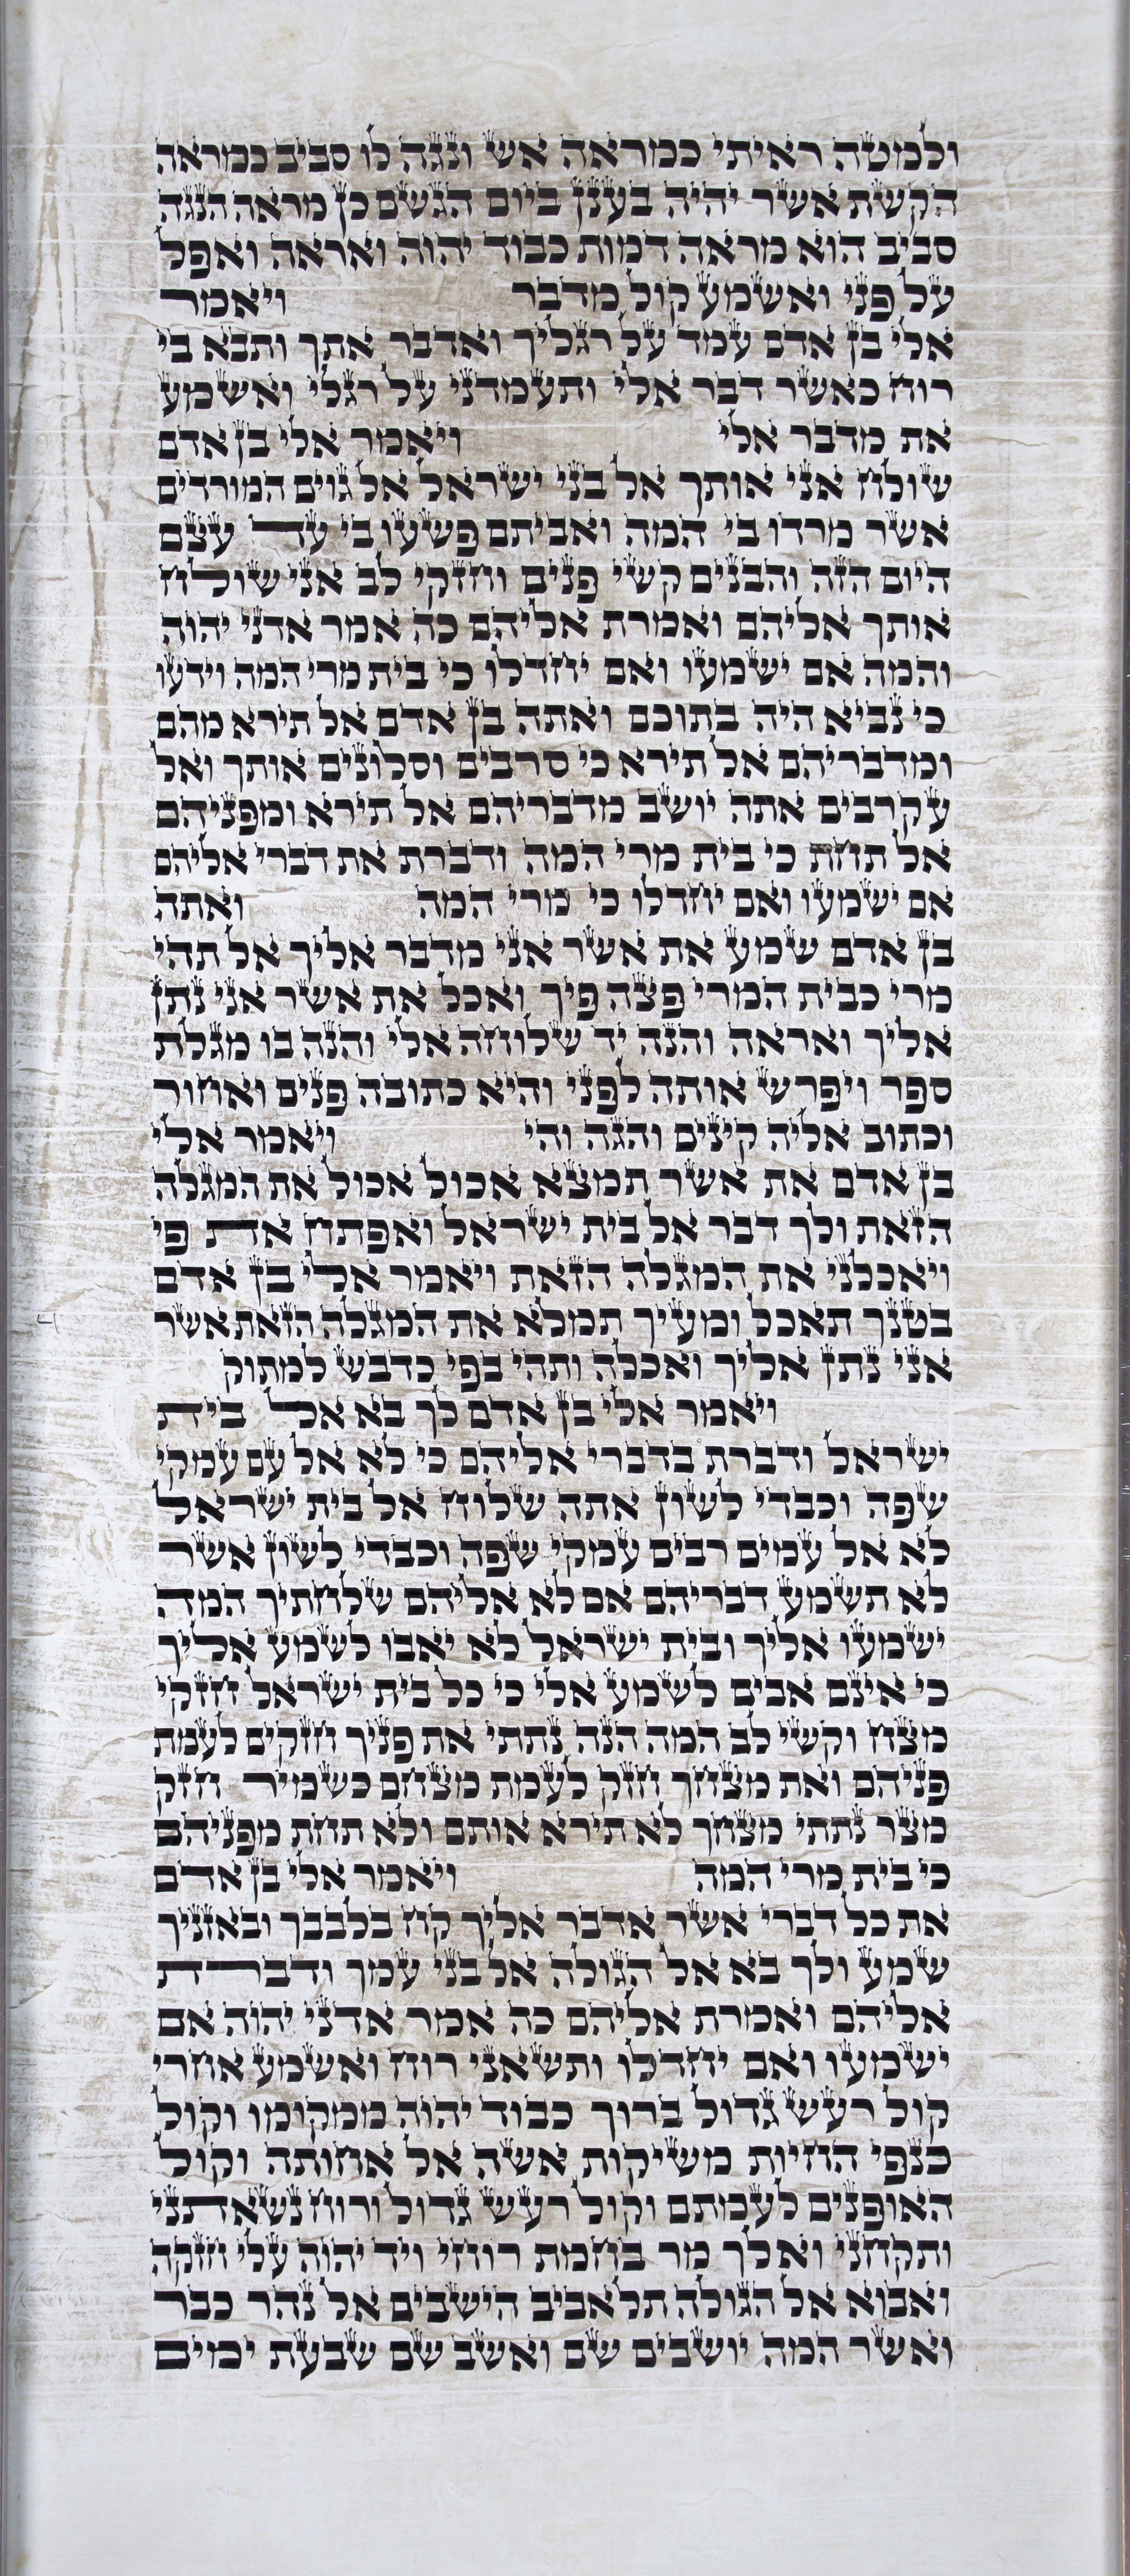 ולמטה ראיתי כמראה אש ונגה לו סביב כמראה
הקשת אשר יהיה בענן ביום הגשם כן מראה הנגה
סביב הוא מראה דמות כבוד יהוה ואראה ואפל
על פני ואשמע קול מדבר ויאמר
אלי בן אדם עמד על רגליך ואדבר אתך ותבא בי
רוח כאשר דבר אלי ותעמדני על רגלי ואשמע
את מדבר אלי ויאמר אלי בן אדם
שולח אני אותך אל בני ישראל אל גוים המורדים
אשר מרדו בי המה ואביתם פשעו בי עד עצם
היום הזה והבנים קשי פנים וחזקי לב אני שולח
אותך אליהם ואמרת אליהם כה אמר אדני יהוה
והמה אם ישמעו ואם יחדלו כי בית מרי המה וידעו
כי נביא היה בתוכם ואתה בן אדם אל תירא מהם
ומדבריהם אל תירא כי סרבים וסלונים אותך ואל
עקרבים אתה יושב מדבריהם אל תירא ומפניהם
אל תחת כי בית מרי המה ודברת את דברי אליהם
אם ישמעו ואם יחדלו כי מרי המה ואתה
בן אדם שמע את אשר אני מדבר אליך אל תהי
מרי כבית המרי פצה פיך ואכל את אשר אני נתן
אליך ואראה והנה יד שלוחה אלי והנה בו מגלת
ספר ויפרש אותה לפני והיא כתובה פנים ואחור
וכתוב אליה קינים והגה והי ויאמר אלי
בן אדם את אשר תמצא אכול אכול את המגלה
הזאת ולך דבר אל בית ישראל ואפתח את פי
ויאכלני את המגלה הזאת ויאמר אלי בן אדם
בטנך תאכל ומעיך תמלא את המגלה הזאת אשר
אני נתן אליך ואכלה ותהי בפי כדבש למתוק
ויאמר אלי בן אדם לך בא אל בית
ישראל ודברת בדברי אליהם כי לא אל עם עמקי
שפה וכבדי לשון אתה שלוח אל בית ישראל
לא אל עמים רבים עמקי שפה וכבדי לשון אשר
לא תשמע דבריהם אם לא אליהם שלחתיך המה
ישמעו אליך ובית ישראל לא יאבו לשמע אליך
כי אינם אבים לשמע אלי כי כל בית ישראל חזקי
מצח וקשי לב המה הנה נתתי את פניך חזקים לעמת
פניהם ואת מצחך חזק לעמת מצחם כשמיר חזק
מצר נתתי מצחך לא תירא אותם ולא תחת מפניהם
כי בית מרי המה ויאמר אלי בן אדם
את כל דברי אשר אדבר אליך קח בלבבך ובאזניך
שמע ולך בא אל הגולה אל בני עמך ודברת
אליהם ואמרת אליהם כה אמר אדני יהוה אם
ישמעו ואם יחדלו ותשאני רוח ואשמע אחרי
קול רעש גדול ברוך כבוד יהוה ממקומו וקול
כנפי החיות משיקות אשה אל אחותה וקול
האופנים לעמתם וקול רעש גדול ורוח נשאתני
ותקחני ואלך מר בחמת רוחי ויד יהוה עלי חזקה
ואבוא אל הגולה תל אביב הישבים אל נהר כבר
ואשר המה יושבים שם ואשב שם שבעת ימים